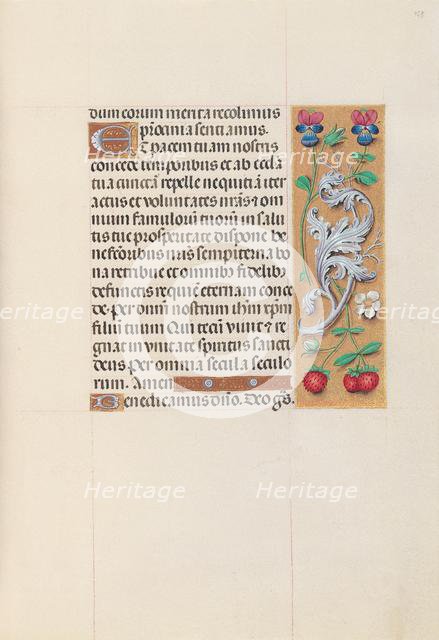 dum eorum merita recolimus
procinia sentiamus.
Et pacem tuam nostris
concede temporibus et ab eccl̄a
tua cunctā repelle nequitiā iter
actus et voluntates nr̄as ⁊ om
nium famulorū tuorū in salu
tis tue prosperitate dispone be
nefcōribus nr̄is sempiterna bo
na retribue et omnibꝫ fidelibꝫ
defunctis requiē eternam conce
de· per dn̄m nostrum ihm̄ xpm̄
filiū tuum Qui tecū viuit ⁊ re
gnat in vnitate spiritus sancti
deus per omnia secula seculo
rum. Amen
Benedicamus dn̄o. Deo gr̄s.
Heritage Heritage
Heritage
Heritage Heritage